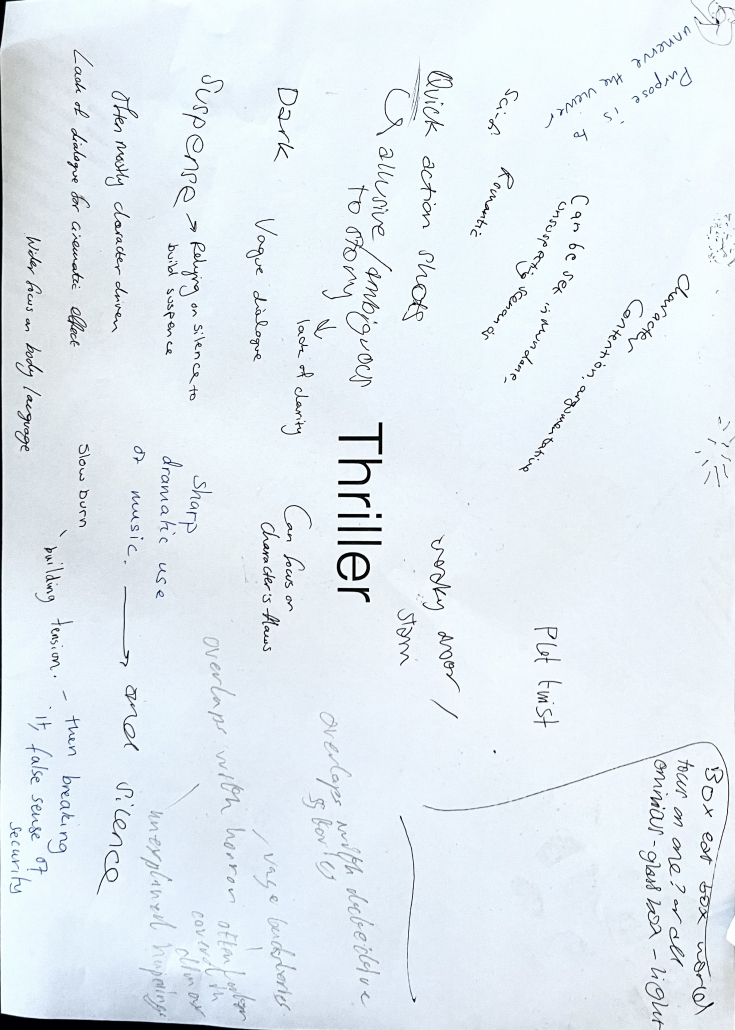 Purpose is to
unnerve the viewer
Quick action shots
allusive/ambiguous
to story
lack of clarity
Romantic
Can be set in mundane,
unsuspecting
Character
Contention, argumentative
Dark
Vague dialogue
Suspense → Relying on silence to
build suspence
Often mostly character driven
Lack of dialogue for cinematic effect
Wider focus on body language
Thriller
Can focus on
character's flaws
sharp
dramatic use
of music. → and silence
Slow burn
building tension. - then breaking
it, false sense of
security
door /
Plot twist
overlaps with
overlaps with horror often
unexplained
Box eat box world
tour on one? or all
ominous - glass box - light